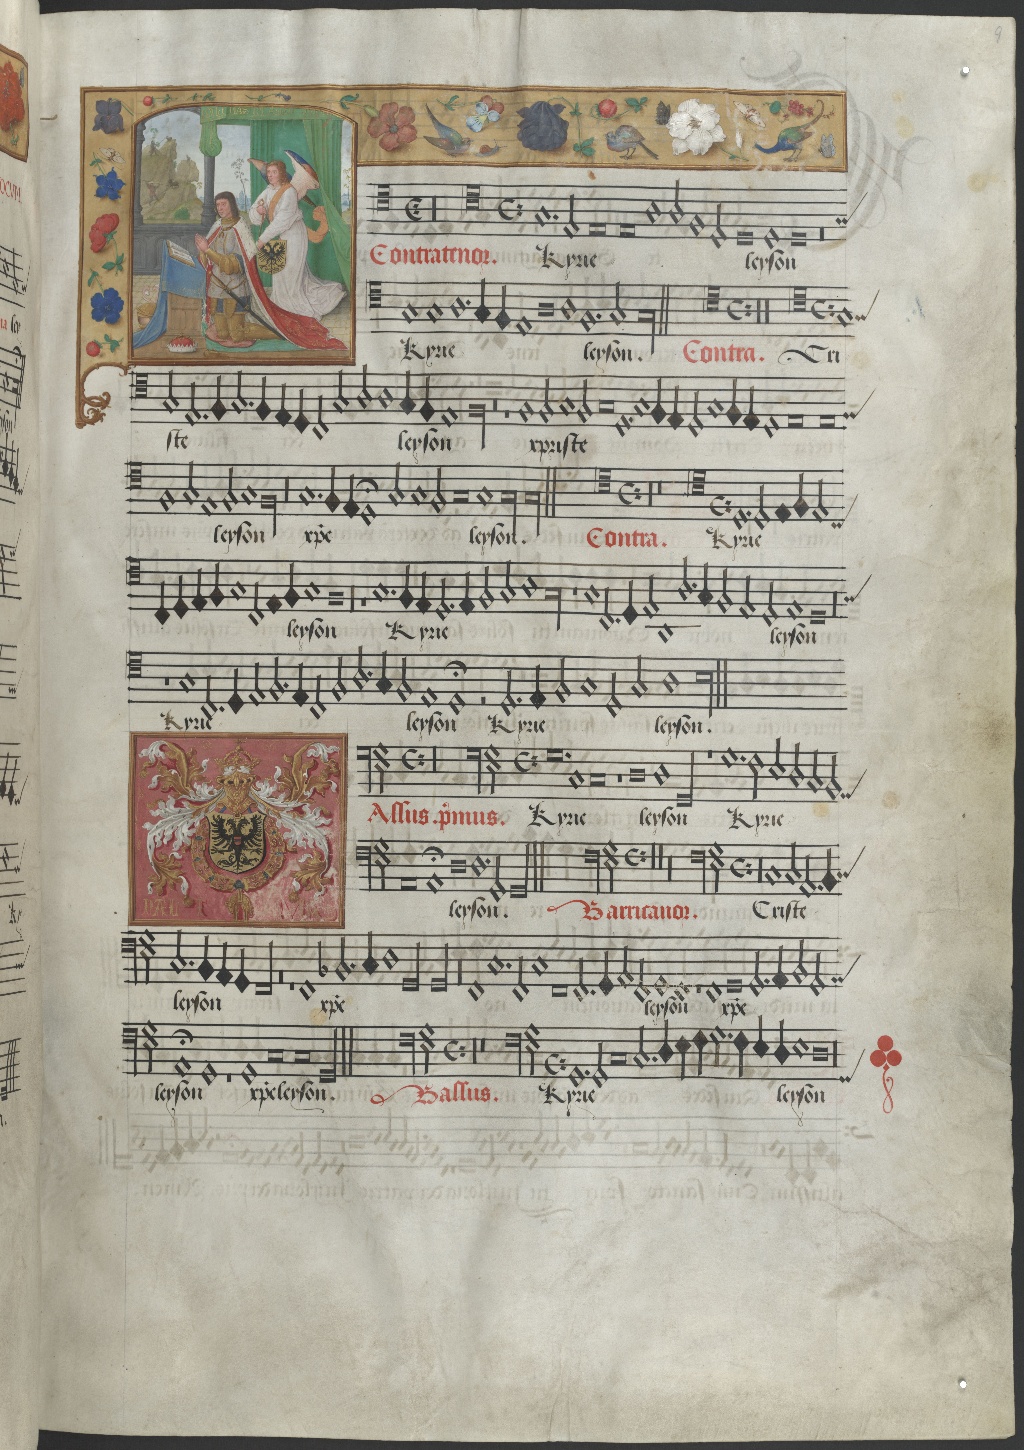 9
Contratenor. Kyrie leyson
Kyrie leyson. Contra. Cri
ste leyson xpriste
leyson xp̄e leyson. Contra. Kyrie
leyson Kyrie leyson
Kyrie leyson Kyrie leyson.
Assus. p̄mus. Kyrie leyson Kyrie
leyson. Barricanor. Criste
leyson xp̄e leyson xp̄e
leyson xp̄e leyson. Bassus. Kyrie leyson